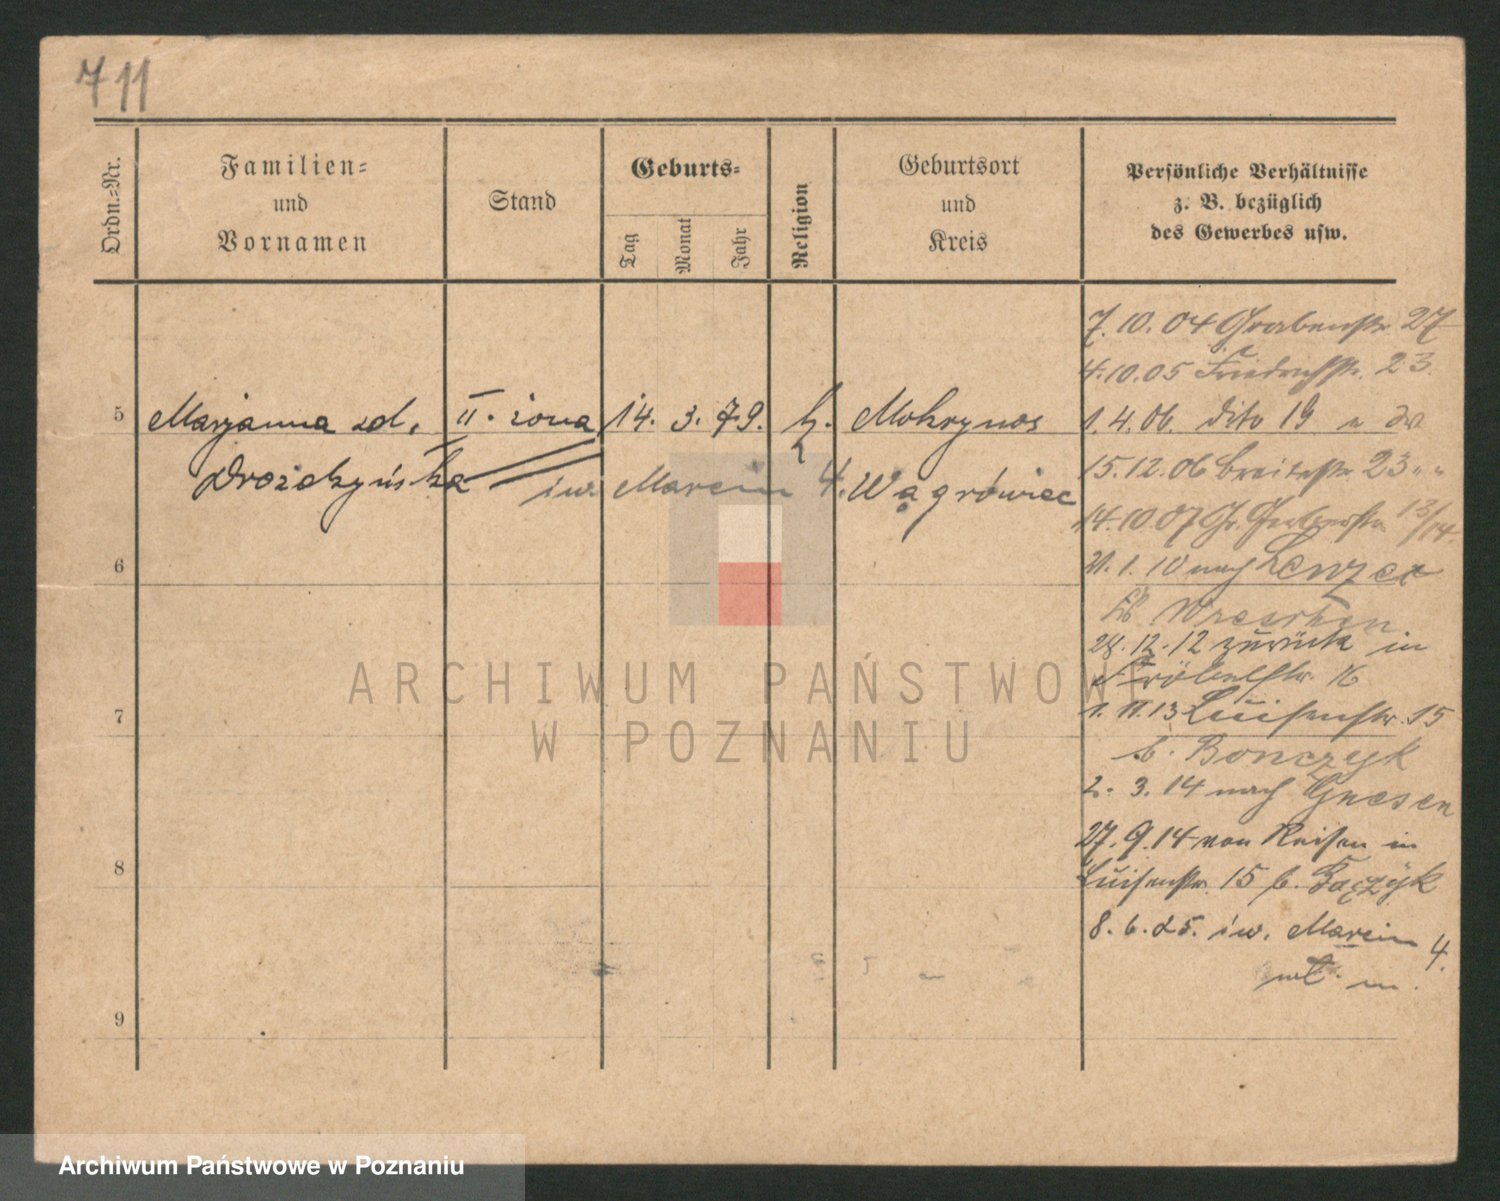 711
Ordn.=Nr.
Familien=
und
Vornamen
Stand
Geburts=
Tag
Monat
Jahr
Religion
Geburtsort
und
Kreis
Persönliche Verhältnisse
z. B. bezüglich
des Gewerbes usw.
7. 10. 04 Grabenstr. 27
4. 10. 05 Friedrichstr. 23.
5 Maryanna zd. II. żona 14. 3. 79. k. Mokrynos 1. 4. 06. dito 19
Drożdżyńska iw. Marcin 4. Wągrówiec 15. 12. 06 Breitestr 23
14. 10. 07 Gr. Gerberstr. 13/14.
6 1. 10 nach
Wreschen
28. 12. 12 zurück in
Fröbelstr. 16
7 1. 11. 13 Luisenstr. 15
b. Bonczyk
2. 3. 14 nach Gnesen
27. 9. 14 von Reisen in
8 Luisenstr. 15 b.
8. 6. 25. iw. Marcin 4.
9
ARCHIWUM PAŃSTWOWE
W POZNANIU
Archiwum Państwowe w Poznaniu